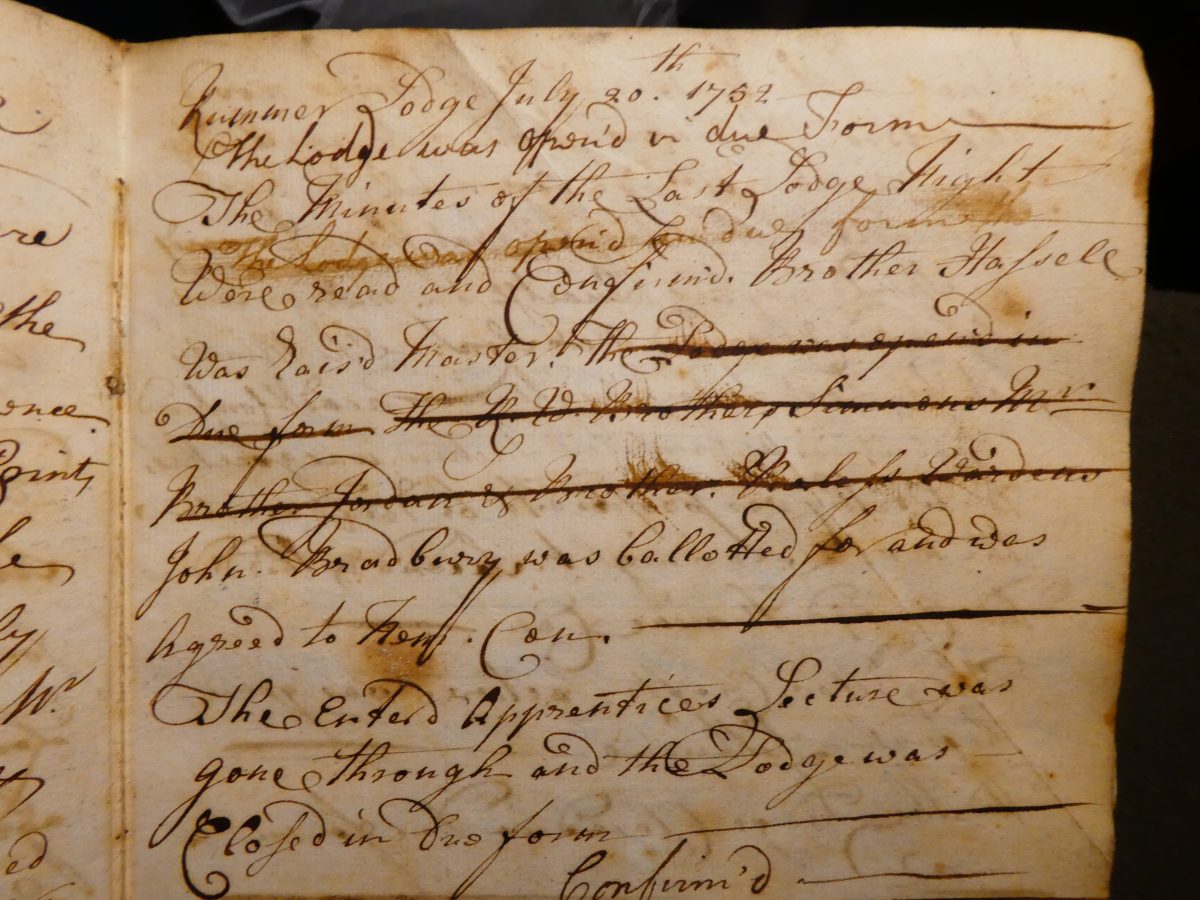 Rummer Lodge July 20th. 1752
The Lodge was open'd in due Form
The Minutes of the Last Lodge Night
The Lodge was open'd in due form
Were read and Confirm'd. Brother Hassell
Was Rais'd Master. The Lodge was open'd in
Due form The R. W. Brother Simmons Mr
Brother Jordan & Brother Wardens
John Bradbury was ballotted for and was
Agreed to Nem. Con.
The Enter'd Apprentices Lecture was
gone through and the Lodge was
Closed in Due form
Confirm'd
re
the
ence
le
ly
Mr
ed